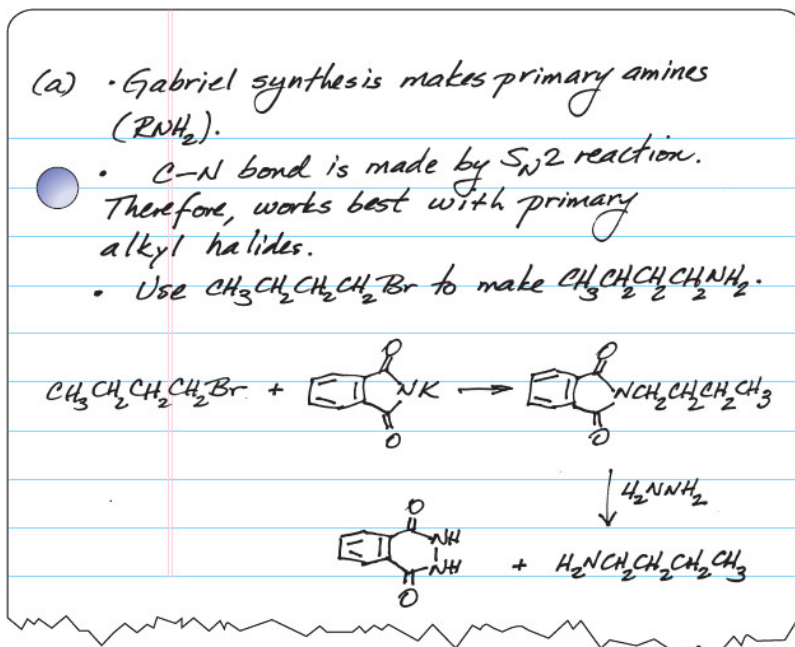 (a) · Gabriel synthesis makes primary amines
(RNH₂).
· C–N bond is made by SN2 reaction.
Therefore, works best with primary
alkyl halides.
· Use CH₃CH₂CH₂CH₂Br to make CH₃CH₂CH₂CH₂NH₂.
O O
CH₃CH₂CH₂CH₂Br + NK → NCH₂CH₂CH₂CH₃
O O
↓ H₂NNH₂
O
NH
NH + H₂NCH₂CH₂CH₂CH₃
O